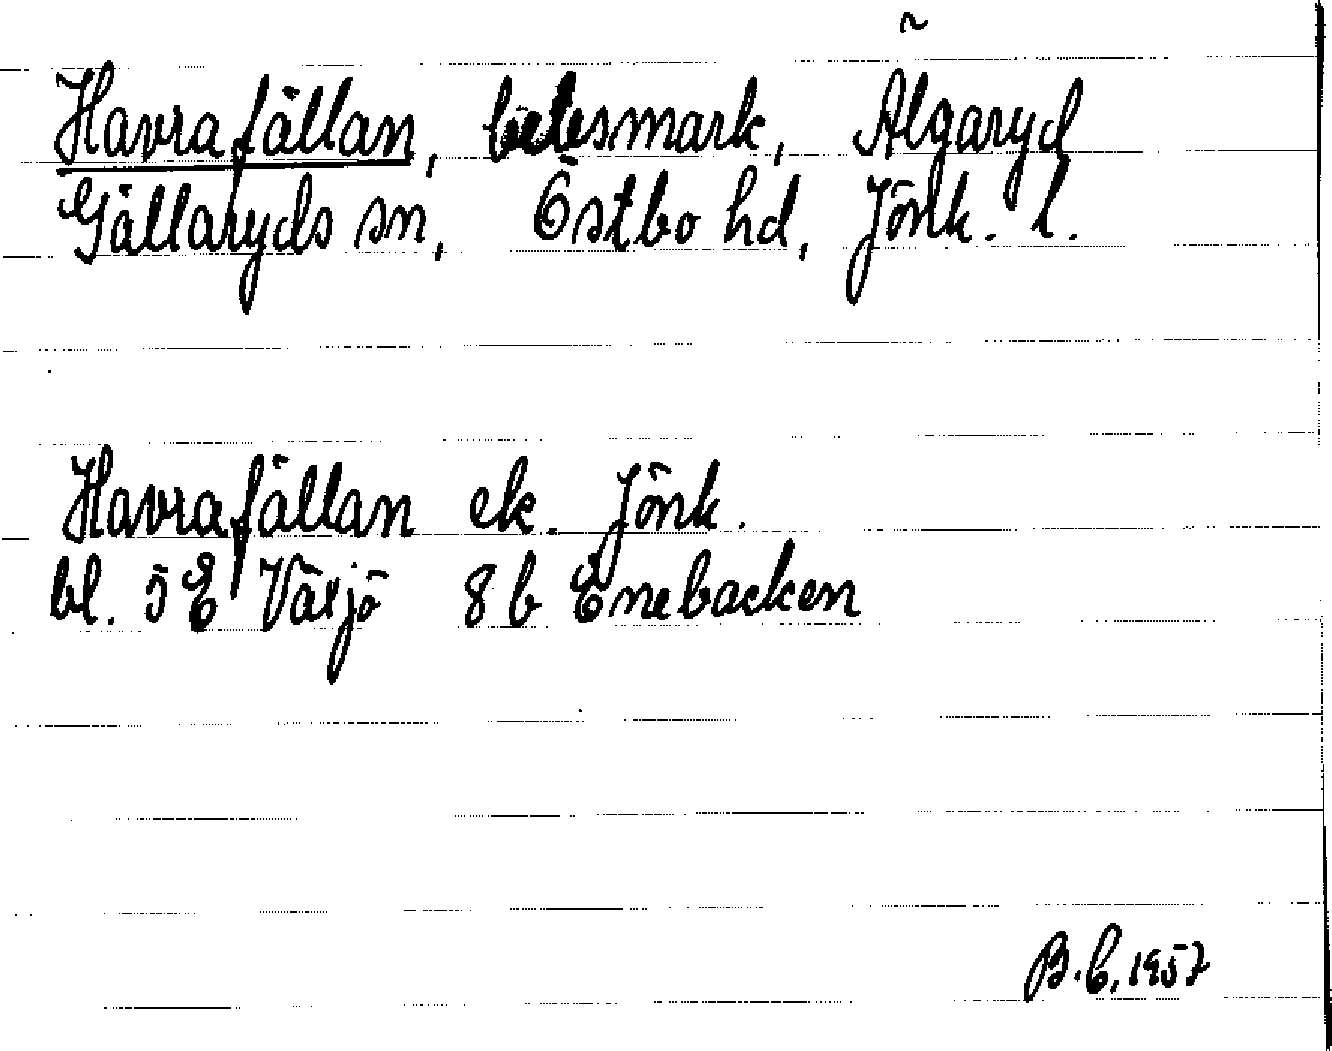 Havrafällan, betesmark, Älgaryd
Gällaryds sn, Östbo hd, Jönk. l.
Havrafällan ek. Jönk.
bl. 5 E Växjö 8 b Enebacken
B.C, 1957